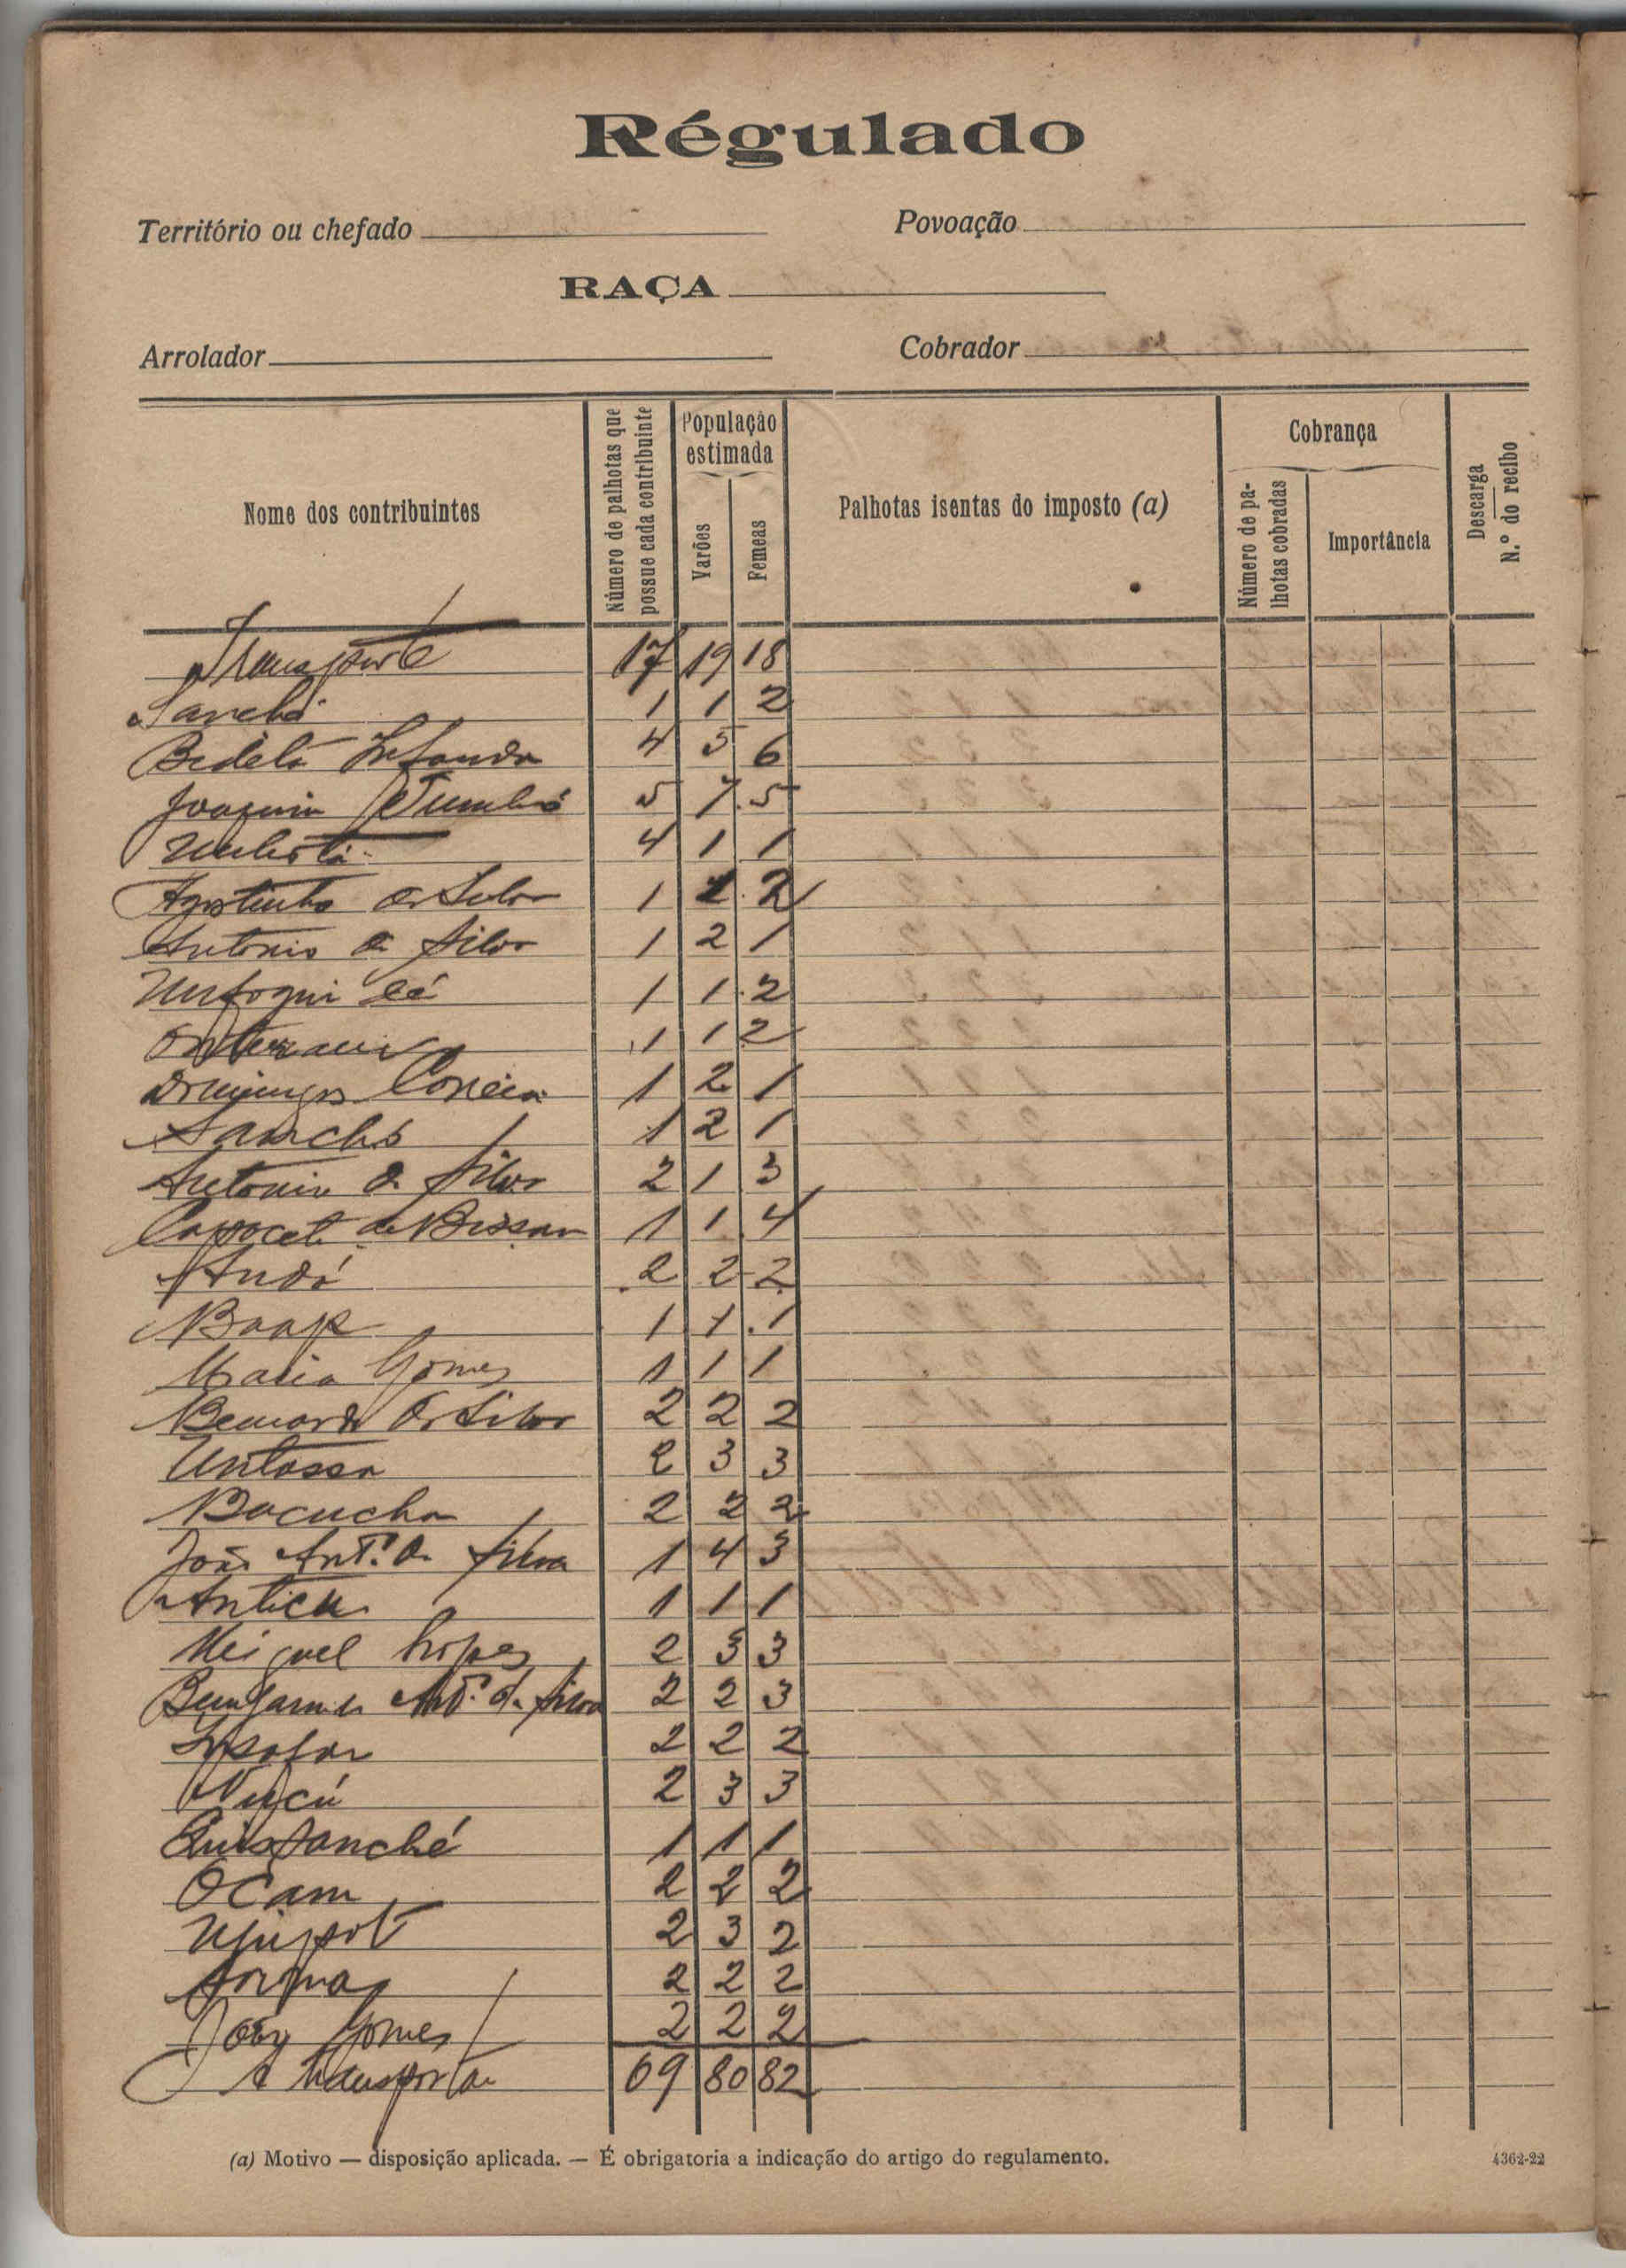 Régulado
Território ou chefado
Povoação
RAÇA
Arrolador
Cobrador
Nome dos contribuintes
Número de palhotas que possue cada contribuinte
População estimada
Varões
Femeas
Palhotas isentas do imposto (a)
Cobrança
Número de palhotas cobradas
Importância
Descarga
N.º do recibo
Transporte 17 19 18
Sanchá 1 1 2
4 5 6
Joaquim 5 7 5
4 1 1
Agostinho da Silva 1 2 2
Antonio da Silva 1 2 1
1 1 2
1 1 2
Domingos Correia 1 2 1
Sanchó 1 2 1
Antonio da Silva 2 1 3
de Bissau 1 1 4
2 2 2
Baap 1 1 1
Maria Gomes 1 1 1
Bernardo da Silva 2 2 2
Untassa 2 3 3
Bacucha 2 2 2
João Antº. da Silva 1 4 3
Antica 1 1 1
Miguel Lopes 2 3 3
Antº. da Silva 2 2 3
2 2 2
2 3 3
1 1 1
Ocam 2 2 2
2 3 2
2 2 2
João Gomes 2 2 2
A transportar 69 80 82
(a) Motivo — disposição aplicada. — É obrigatoria a indicação do artigo do regulamento.
4362-22